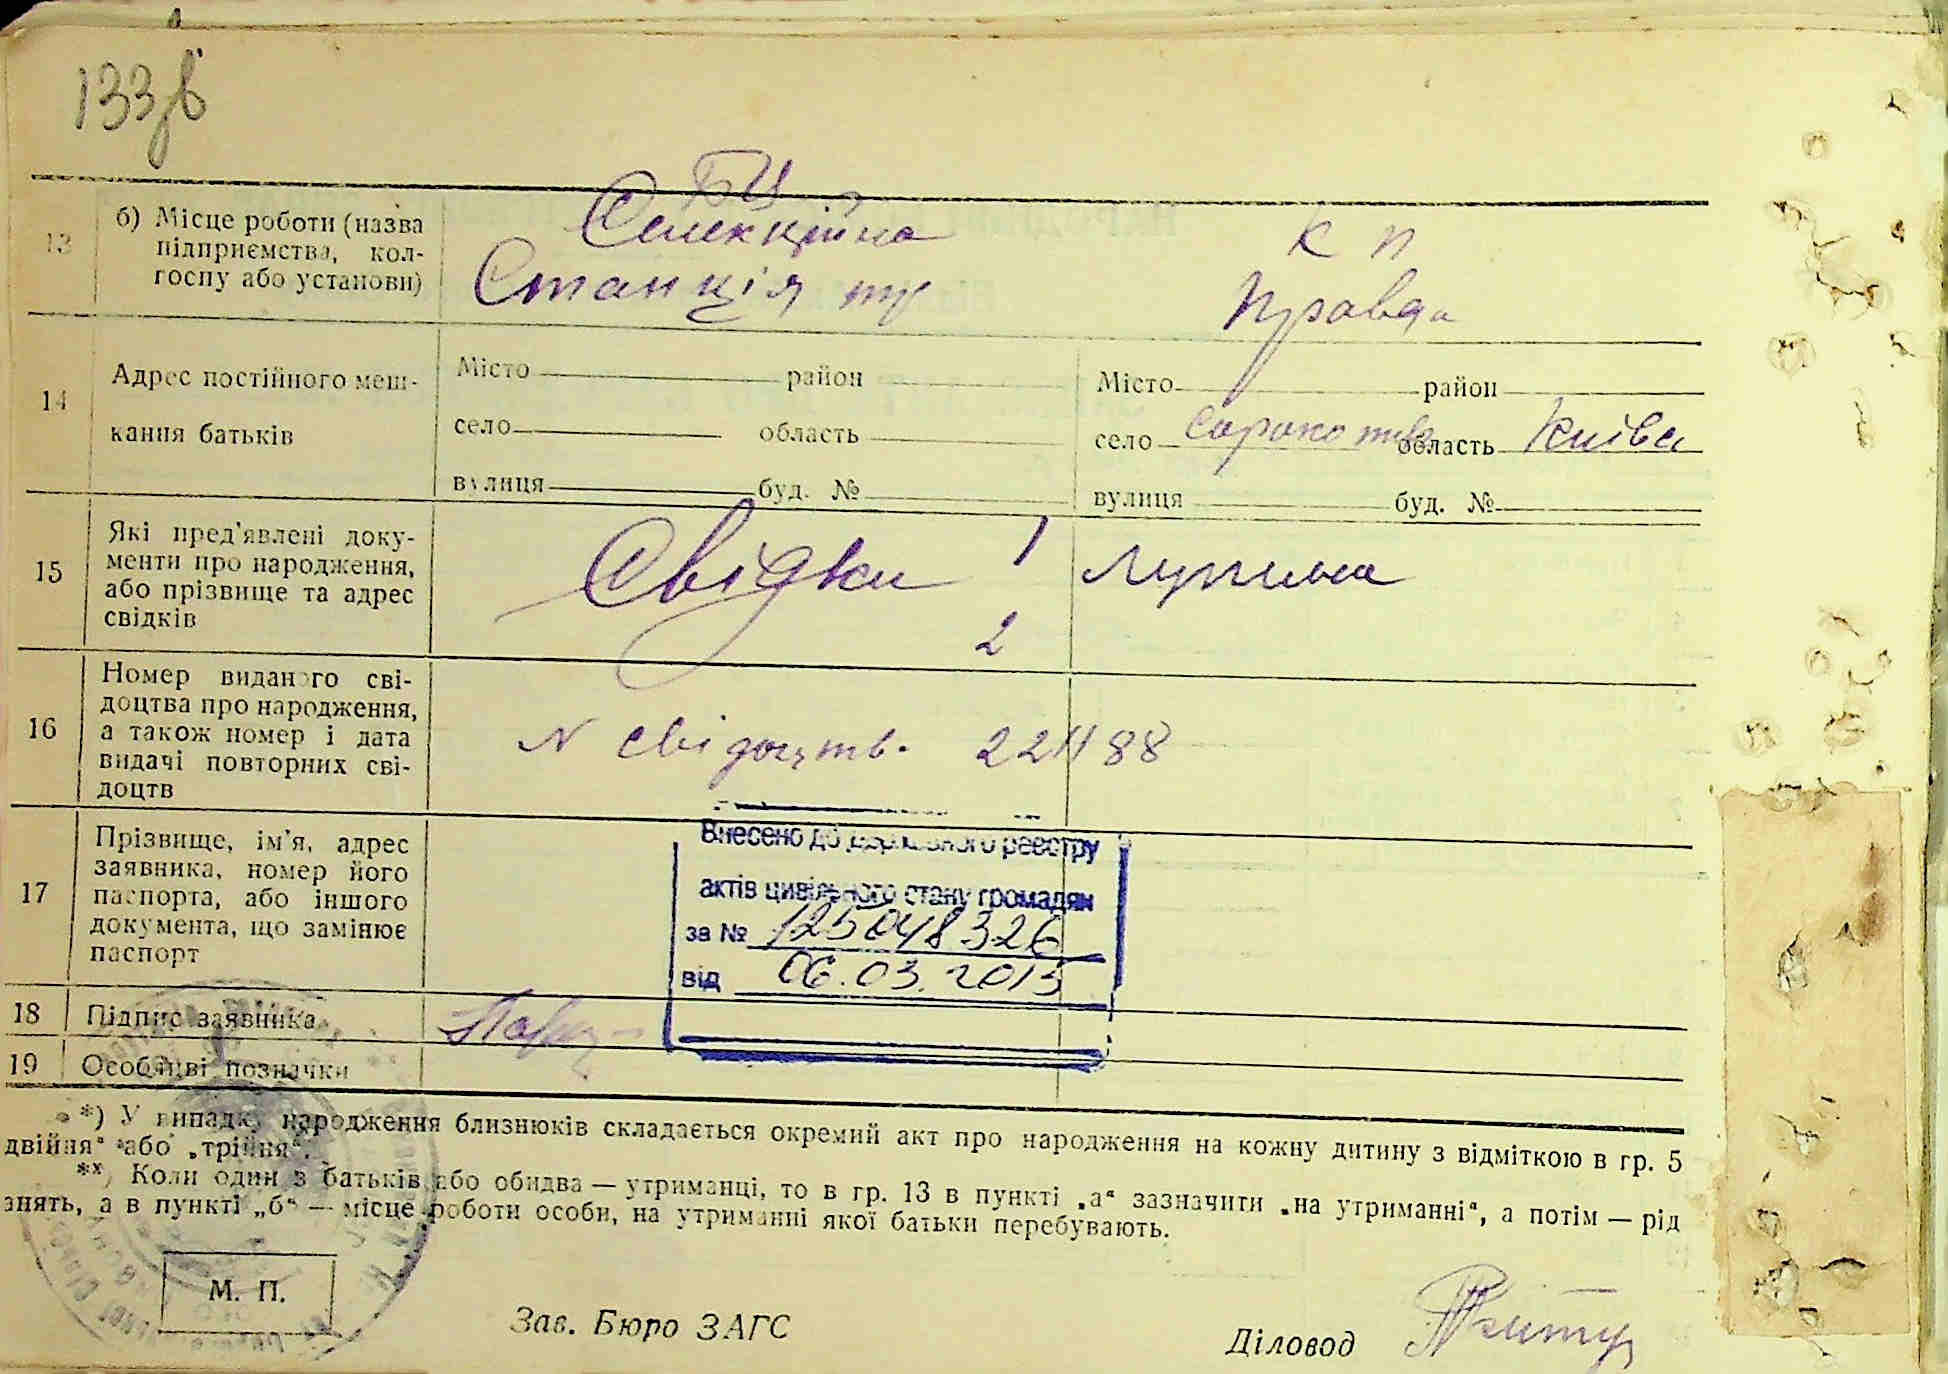 133зв
БЦ
13 б) Місце роботи (назва підприємства, колгоспу або установи)
Селекційна
Станція
к п
Правда
14 Адрес постійного меш-
кання батьків
Місто район
село область
вулиця буд. №
Місто район
село Сорокотяга область Київск
вулиця буд. №
15 Які пред'явлені доку-
менти про народження,
або прізвище та адрес
свідків
Свідки 1
2
16 Номер виданого сві-
доцтва про народження,
а також номер і дата
видачі повторних сві-
доцтв
N свідоцтв. 221188
17 Прізвище, ім'я, адрес
заявника, номер його
паспорта, або іншого
документа, що замінює
паспорт
Внесено до Державного реєстру
актів цивільного стану громадян
за № 125048326
від 06.03.2013
18 Підпис заявника
19 Особливі позначки
*) У випадку народження близнюків складається окремий акт про народження на кожну дитину з відміткою в гр. 5
двійня" або „трійня".
*х) Коли один з батьків або обидва — утриманці, то в гр. 13 в пункті „а" зазначити „на утриманні", а потім — рід
знять, а в пункті „б" — місце роботи особи, на утриманні якої батьки перебувають.
М. П.
Зав. Бюро ЗАГС
Діловод